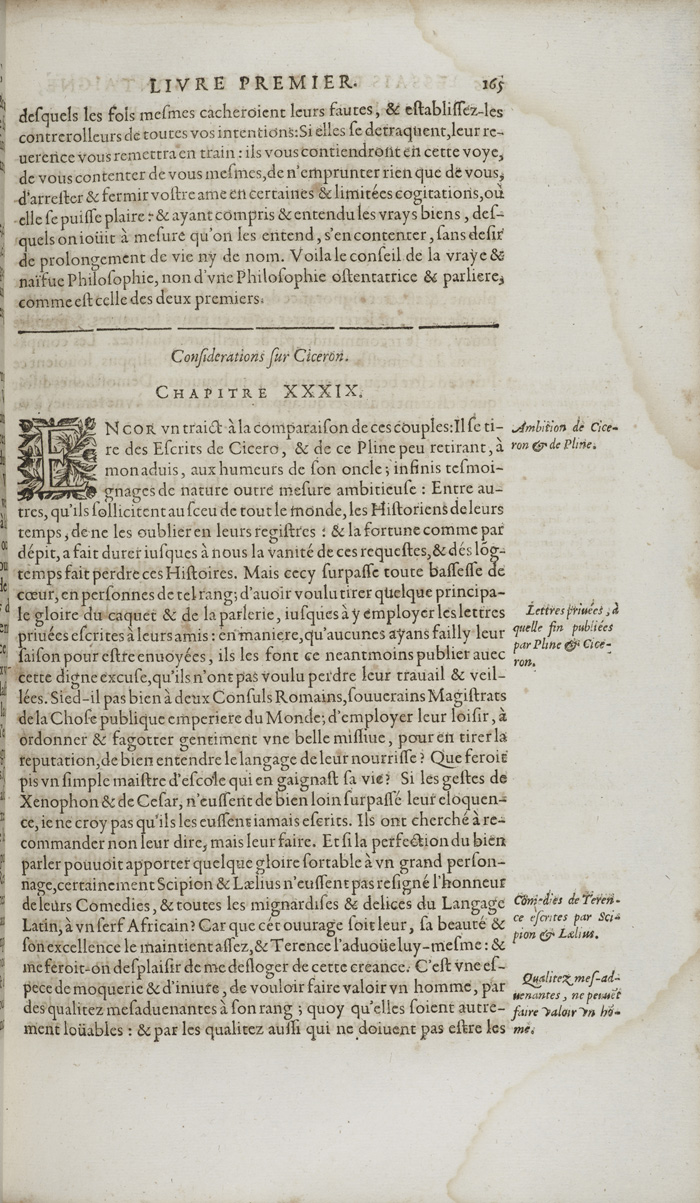 LIVRE PREMIER. 165
desquels les fols mesmes cacheroient leurs fautes, & establissez-les
contrerolleurs de toutes vos intentions: Si elles se detraquent, leur re-
uerence vous remettra en train: ils vous contiendront en cette voye,
de vous contenter de vous mesmes, de n'emprunter rien que de vous,
d'arrester & fermir vostre ame en certaines & limitées cogitations, où
elle se puisse plaire: & ayant compris & entendu les vrays biens, des-
quels on ioüit à mesure qu'on les entend, s'en contenter, sans desir
de prolongement de vie ny de nom. Voila le conseil de la vraye &
naïfue Philosophie, non d'vne Philosophie ostentatrice & parliere,
comme est celle des deux premiers.
Considerations sur Ciceron.
CHAPITRE XXXIX.
ENCOR vn traict à la comparaison de ces couples: Il se ti-
re des Escrits de Cicero, & de ce Pline peu retirant, à
mon aduis, aux humeurs de son oncle; infinis tesmoi-
gnages de nature outre mesure ambitieuse: Entre au-
tres, qu'ils sollicitent au sceu de tout le monde, les Historiens de leurs
temps, de ne les oublier en leurs registres: & la fortune comme par
dépit, a fait durer iusques à nous la vanité de ces requestes, & dés lõg-
temps fait perdre ces Histoires. Mais cecy surpasse toute bassesse de
cœur, en personnes de tel rang; d'auoir voulu tirer quelque principa-
le gloire du caquet & de la parlerie, iusques à y employer les lettres
priuées escrites à leurs amis: en maniere, qu'aucunes ayans failly leur
saison pour estre enuoyées, ils les font ce neantmoins publier auec
cette digne excuse, qu'ils n'ont pas voulu perdre leur trauail & veil-
lées. Sied-il pas bien à deux Consuls Romains, souuerains Magistrats
de la Chose publique emperiere du Monde; d'employer leur loisir, à
ordonner & fagotter gentiment vne belle missiue, pour en tirer la
reputation, de bien entendre le langage de leur nourrisse? Que feroit
pis vn simple maistre d'escole qui en gaignast sa vie? Si les gestes de
Xenophon & de Cesar, n'eussent de bien loin surpassé leur eloquen-
ce, ie ne croy pas qu'ils les eussent iamais escrits. Ils ont cherché à re-
commander non leur dire, mais leur faire. Et si la perfection du bien
parler pouuoit apporter quelque gloire sortable à vn grand person-
nage, certainement Scipion & Lælius n'eussent pas resigné l'honneur
de leurs Comedies, & toutes les mignardises & delices du Langage
Latin, à vn serf Africain? Car que cét ouurage soit leur, sa beauté &
son excellence le maintient assez, & Terence l'aduoüe luy-mesme: &
me feroit-on desplaisir de me desloger de cette creance. C'est vne es-
pece de moquerie & d'iniure, de vouloir faire valoir vn homme, par
des qualitez mesaduenantes à son rang; quoy qu'elles soient autre-
ment loüables: & par les qualitez aussi qui ne doiuent pas estre les
Ambition de Cice-
ron & de Pline.
Lettres priuées, à
quelle fin publiées
par Pline & Cice-
ron.
Comedies de Teren-
ce escrites par Sci-
pion & Lælius.
Qualitez mes-ad-
uenantes, ne peuuēt
faire valoir vn hõ-
me.